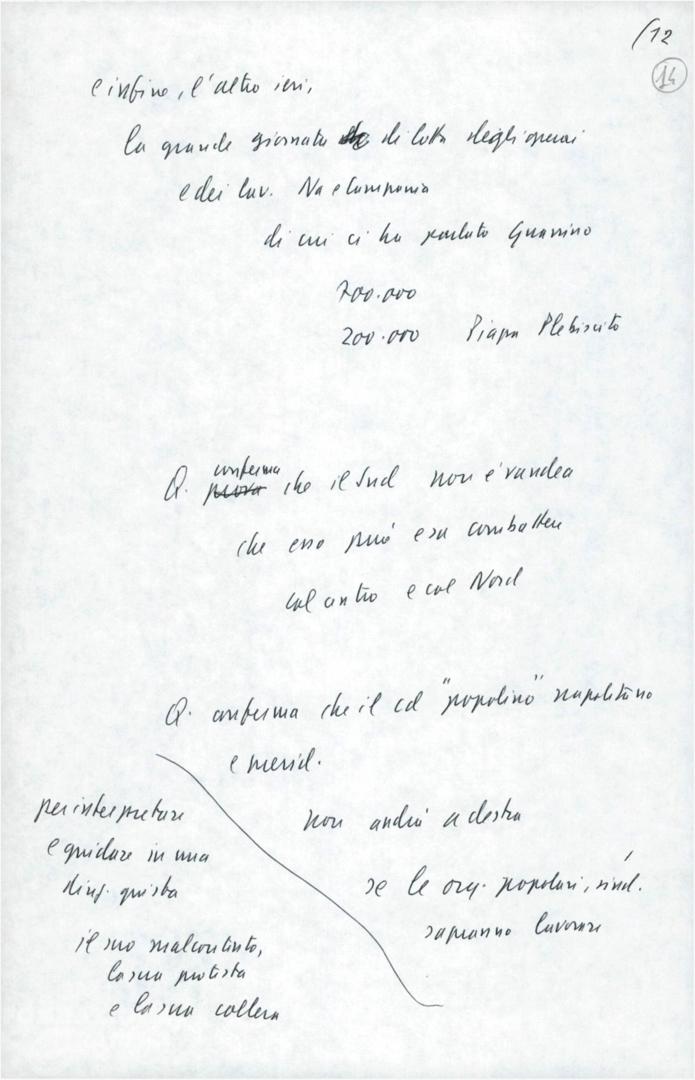 12
14
e infine, l'altro ieri,
la grande giornata di lotta degli operai
e dei lav. Na e Campania
di cui ci ha parlato Guarino
700.000
200.000 Piazza Plebiscito
Q. conferma prova che il Sud non è vandea
che esso può e sa combattere
col centro e col Nord
Q. conferma che il cd "popolino" napoletano
e merid.
non andrà a destra
se le org. popolari, sind.
sapranno lavorare
per interpretare
e guidare in una
direz. giusta
il suo malcontento,
la sua protesta
e la sua collera